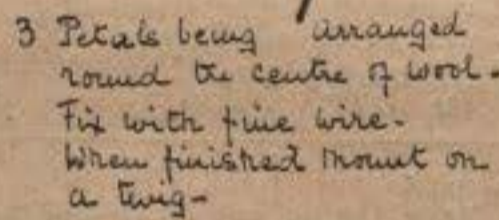 3 Petals being arranged
round the centre of wool -
Fix with fine wire -
When finished mount on
a twig -